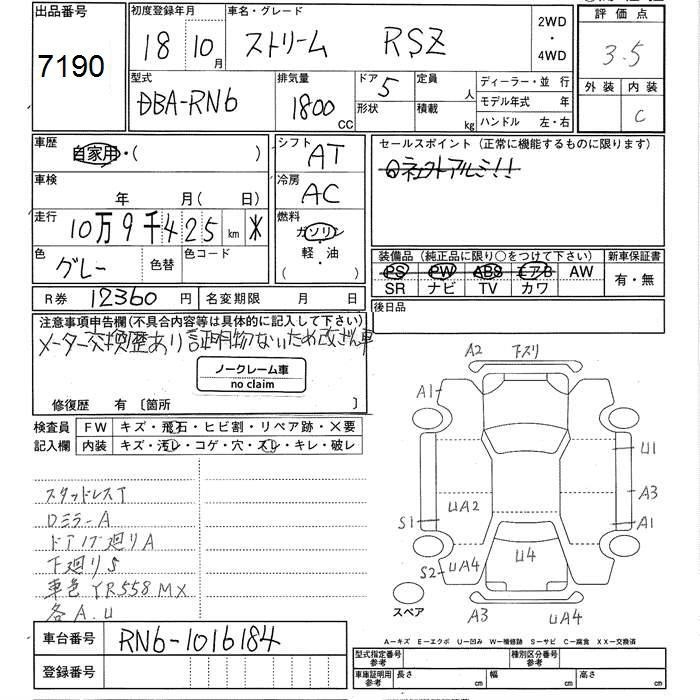 出品番号
7190
初度登録年月
18 10月
車名・グレード
ストリーム RSZ
2WD
・
4WD
評価点
3.5
外装 内装
C
型式
DBA-RN6
排気量
1800 CC
ドア 5
形状
定員 人
積載 kg
ディーラー・並 行
モデル年式 年
ハンドル 左・右
車歴
自家用・( )
車検
年 月( 日)
走行
10万9千425 km *
色
グレー
色替
色コード
シフト
AT
冷房
AC
燃料
ガソリン
・
軽・油
( )
セールスポイント (正常に機能するものに限ります)
装備品 (純正品に限り○をつけて下さい)
PS PW ABS エアB AW
SR ナビ TV カワ
新車保証書
有・無
R券 12360 円
名変期限 月 日
後日品
注意事項申告欄(不具合内容等は具体的に記入して下さい)
メーター交換歴あり 証明物ないため改ざん車
ノークレーム車
no claim
修復歴 有 〔箇所 〕
検査員
記入欄
FW キズ・飛石・ヒビ割・リペア跡・×要
内装 キズ・汚レ・コゲ・穴・スレ・キレ・破レ
スタッドレスT
ロミラーA
ドアノブ廻りA
下廻りS
車色 YR558MX
各A.U
A2 下スリ
A1
U1
A3
UA2
S1
A1
U4
S2 UA4
スペア
A3
UA4
A-キズ E-エクボ U-凹み W-補修跡 S-サビ C-腐食 XX-交換済
車台番号
RN6-1016184
登録番号
型式指定番号
参考
種別区分番号
参考
車庫証明用
参考
長さ cm
幅 cm
高さ cm